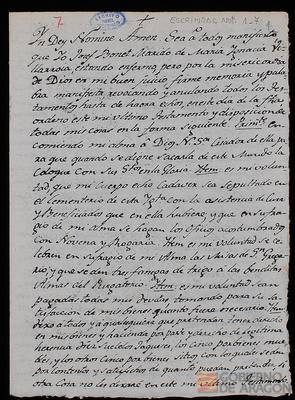 7
ESCRIBANO ANT. 1-7
In Dey Nomine Amen Sea á todos manifiesto
que Yo Josef Bonet Marido de Maria Ygnacia
estando enfermo pero por la misericordia
de Dios en mi buen juicio firme memoria y pala
bra manifiesta, revocando y anulando todos los tes
tamentos hasta de haora
ordeno este mi ultimo testamento y disposicion de
todas mis cosas en la forma siguiente. Primte. En
comiendo mi alma á Dios Nro. Sr. Criador de ella pa
ra que quando se digne sacarla de este Mundo la
coloque con Sus Stos. en la Gloria. Item: es mi volun
tad, que mi Cuerpo echo Cadaver sea sepultado en
el cementerio de esta con asistencia de Cura
y Beneficiados que en ella hubiere, y que en sufra
gio de mi Alma se hagan los Oficios acostumbrados
con Novena y Item es mi voluntad se ce
lebren en sufragio de mi Alma las Misas de Sn. Grego
rio y que se den tres fanegas de trigo á las benditas
Almas del Purgatorio. Item: es mi voluntad sean
pagadas todas mis deudas, tomando para su sa
tisfaccion de mis bienes quanto fuere necesario. Item
dexo a todos y á qualesquiera que pretendan tener derecho
en mis bienes y hacienda por parte y derecho de legitima
herencia diez sueldos Jaqueses, los cinco por bienes mue
bles, y los otros cinco por bienes sitios con los quales se den
por contentos y satisfechos de quanto puedan pretender, y
otra cosa no les dexaré en este mi ultimo
GOBIERNO
DE ARAGON